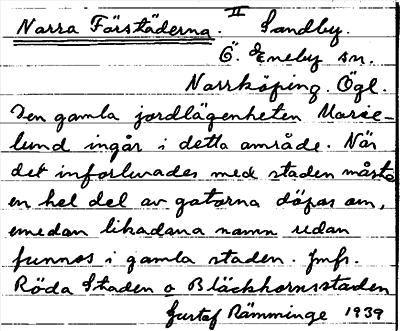 Norra Förstäderna. II Sandby.
Ö. Eneby sn.
Norrköping. Ögl.
Den gamla jordlägenheten Marie-
lund ingår i detta område. När
det införlivades med staden måste
en hel del av gatorna döpas om,
emedan likadana namn redan
funnos i gamla staden. Jmfr.
Röda Staden o Bläckhornsstaden
Gustaf Rämminge 1939